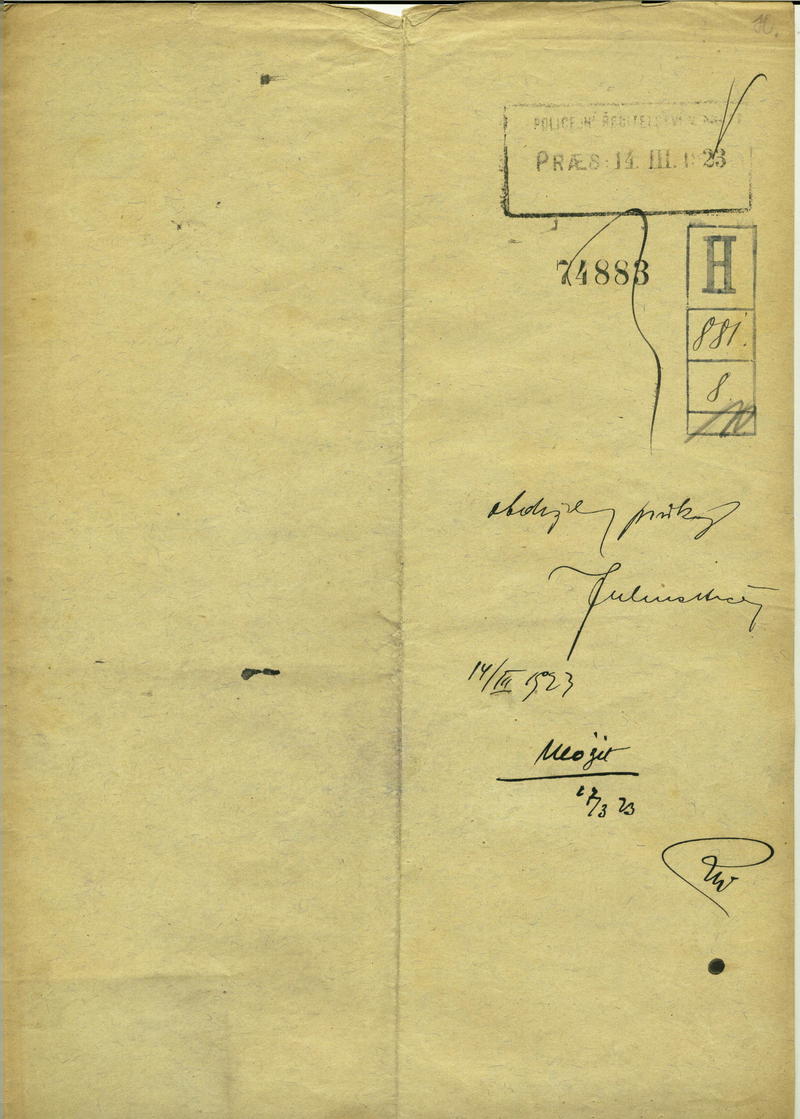 POLICEJNÍ ŘEDITELSTVÍ V
PRÆS 14. III. 1923
74883
H
881.
8
obdržel průkaz
14/III 1923
Uložit
17/3 23